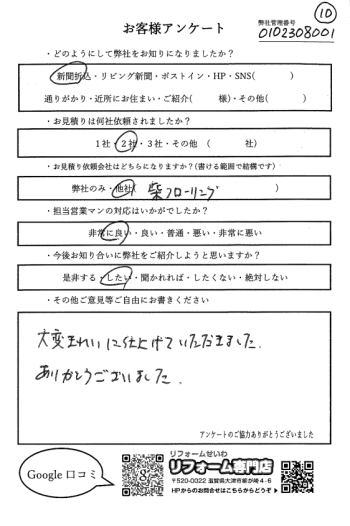 ⑩
お客様アンケート
弊社管理番号
0102308001
・どのようにして弊社をお知りになりましたか？
新聞折込・リビング新聞・ポストイン・HP・SNS(　　　)
通りがかり・近所にお住まい・ご紹介(　　　様)・その他(　　　)
・お見積りは何社依頼されましたか？
1社・2社・3社・その他　(　　　社)
・お見積り依頼会社はどちらになりますか？(書ける範囲で結構です)
弊社のみ・他社(　柴フローリング　)
・担当営業マンの対応はいかがでしたか？
非常に良い・良い・普通・悪い・非常に悪い
・今後お知り合いに弊社をご紹介しようと思いますか？
是非する・したい・聞かれれば・したくない・絶対しない
・その他ご意見等ご自由にお書きください
大変きれいに仕上げていただきました。
ありがとうございました。
アンケートのご協力ありがとうございました
Google 口コミ
g
リフォームせいわ
リフォーム専門店
〒520-0022 滋賀県大津市柳が崎4-6
HPからのお問合せはこちらからどうぞ▶